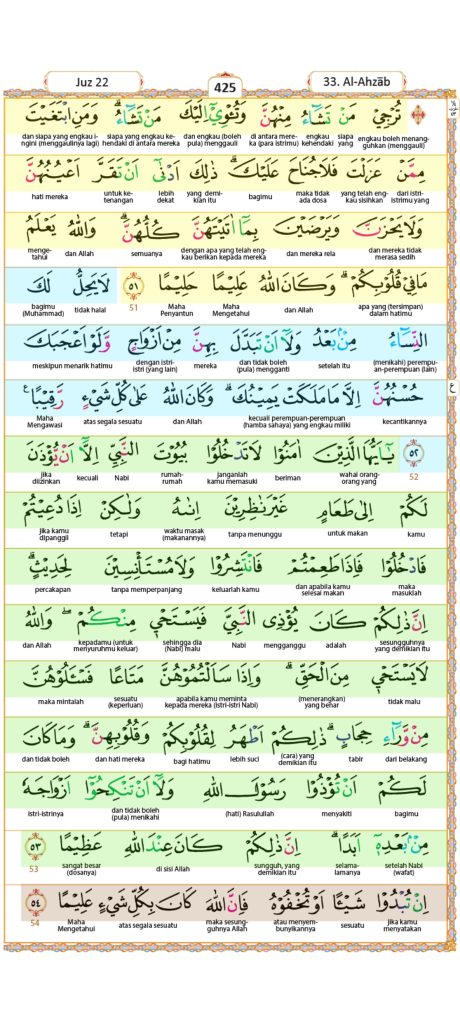 Juz 22
425
33. Al-Ahzāb
تُرْجِيْ مَنْ تَشَاۤءُ مِنْهُنَّ وَتُـْٔوِيْٓ اِلَيْكَ مَنْ تَشَاۤءُۗ وَمَنِ ابْتَغَيْتَ
engkau boleh menangguhkan (menggauli) siapa yang engkau kehendaki di antara mereka (para istrimu) dan engkau (boleh pula) menggauli siapa yang engkau kehendaki di antara mereka dan siapa yang engkau ingini (menggaulinya lagi)
مِمَّنْ عَزَلْتَ فَلَا جُنَاحَ عَلَيْكَۗ ذٰلِكَ اَدْنٰٓى اَنْ تَقَرَّ اَعْيُنُهُنَّ
dari istri-istrimu yang yang telah engkau sisihkan maka tidak ada dosa bagimu yang demikian itu lebih dekat untuk ketenangan hati mereka
وَلَا يَحْزَنَّ وَيَرْضَيْنَ بِمَآ اٰتَيْتَهُنَّ كُلُّهُنَّۗ وَاللّٰهُ يَعْلَمُ
dan mereka tidak merasa sedih dan mereka rela dengan apa yang telah engkau berikan kepada mereka semuanya dan Allah mengetahui
مَا فِيْ قُلُوْبِكُمْۗ وَكَانَ اللّٰهُ عَلِيْمًا حَلِيْمًا ٥١ لَا يَحِلُّ لَكَ
apa yang (tersimpan) dalam hatimu dan Allah Maha Mengetahui Maha Penyantun 51 tidak halal bagimu (Muhammad)
النِّسَاۤءُ مِنْۢ بَعْدُ وَلَآ اَنْ تَبَدَّلَ بِهِنَّ مِنْ اَزْوَاجٍ وَّلَوْ اَعْجَبَكَ
(menikahi) perempuan-perempuan (lain) setelah itu dan tidak boleh (pula) mengganti mereka dengan istri-istri (yang lain) meskipun menarik hatimu
حُسْنُهُنَّ اِلَّا مَا مَلَكَتْ يَمِيْنُكَۗ وَكَانَ اللّٰهُ عَلٰى كُلِّ شَيْءٍ رَّقِيْبًا ࣖ
ع
kecantikannya kecuali perempuan-perempuan (hamba sahaya) yang engkau miliki dan Allah atas segala sesuatu Maha Mengawasi
٥٢ يٰٓاَيُّهَا الَّذِيْنَ اٰمَنُوْا لَا تَدْخُلُوْا بُيُوْتَ النَّبِيِّ اِلَّآ اَنْ يُّؤْذَنَ
52 wahai orang-orang yang beriman janganlah kamu memasuki rumah-rumah Nabi kecuali jika diizinkan
لَكُمْ اِلٰى طَعَامٍ غَيْرَ نٰظِرِيْنَ اِنٰىهُ وَلٰكِنْ اِذَا دُعِيْتُمْ
kamu untuk makan tanpa menunggu waktu masak (makanannya) tetapi jika kamu dipanggil
فَادْخُلُوْا فَاِذَا طَعِمْتُمْ فَانْتَشِرُوْا وَلَا مُسْتَأْنِسِيْنَ لِحَدِيْثٍۗ
maka masuklah dan apabila kamu selesai makan keluarlah kamu tanpa memperpanjang percakapan
اِنَّ ذٰلِكُمْ كَانَ يُؤْذِى النَّبِيَّ فَيَسْتَحْيٖ مِنْكُمْۖ وَاللّٰهُ
sesungguhnya yang demikian itu adalah mengganggu Nabi sehingga dia (Nabi) malu kepadamu (untuk menyuruhmu keluar) dan Allah
لَا يَسْتَحْيٖ مِنَ الْحَقِّۗ وَاِذَا سَاَلْتُمُوْهُنَّ مَتَاعًا فَسْـَٔلُوْهُنَّ
tidak malu (menerangkan) yang benar apabila kamu meminta kepada mereka (istri-istri Nabi) sesuatu (keperluan) maka mintalah
مِنْ وَّرَاۤءِ حِجَابٍۗ ذٰلِكُمْ اَطْهَرُ لِقُلُوْبِكُمْ وَقُلُوْبِهِنَّۗ وَمَا كَانَ
dari belakang tabir (cara) yang demikian itu lebih suci bagi hatimu dan hati mereka dan tidak boleh
لَكُمْ اَنْ تُؤْذُوْا رَسُوْلَ اللّٰهِ وَلَآ اَنْ تَنْكِحُوْٓا اَزْوَاجَهٗ
bagimu menyakiti (hati) Rasulullah dan tidak boleh (pula) menikahi istri-istrinya
مِنْۢ بَعْدِهٖٓ اَبَدًاۗ اِنَّ ذٰلِكُمْ كَانَ عِنْدَ اللّٰهِ عَظِيْمًا ٥٣
setelah Nabi (wafat) selama-lamanya sungguh, yang demikian itu di sisi Allah sangat besar (dosanya) 53
اِنْ تُبْدُوْا شَيْـًٔا اَوْ تُخْفُوْهُ فَاِنَّ اللّٰهَ كَانَ بِكُلِّ شَيْءٍ عَلِيْمًا ٥٤
jika kamu menyatakan sesuatu atau menyembunyikannya maka sesungguhnya Allah atas segala sesuatu Maha Mengetahui 54